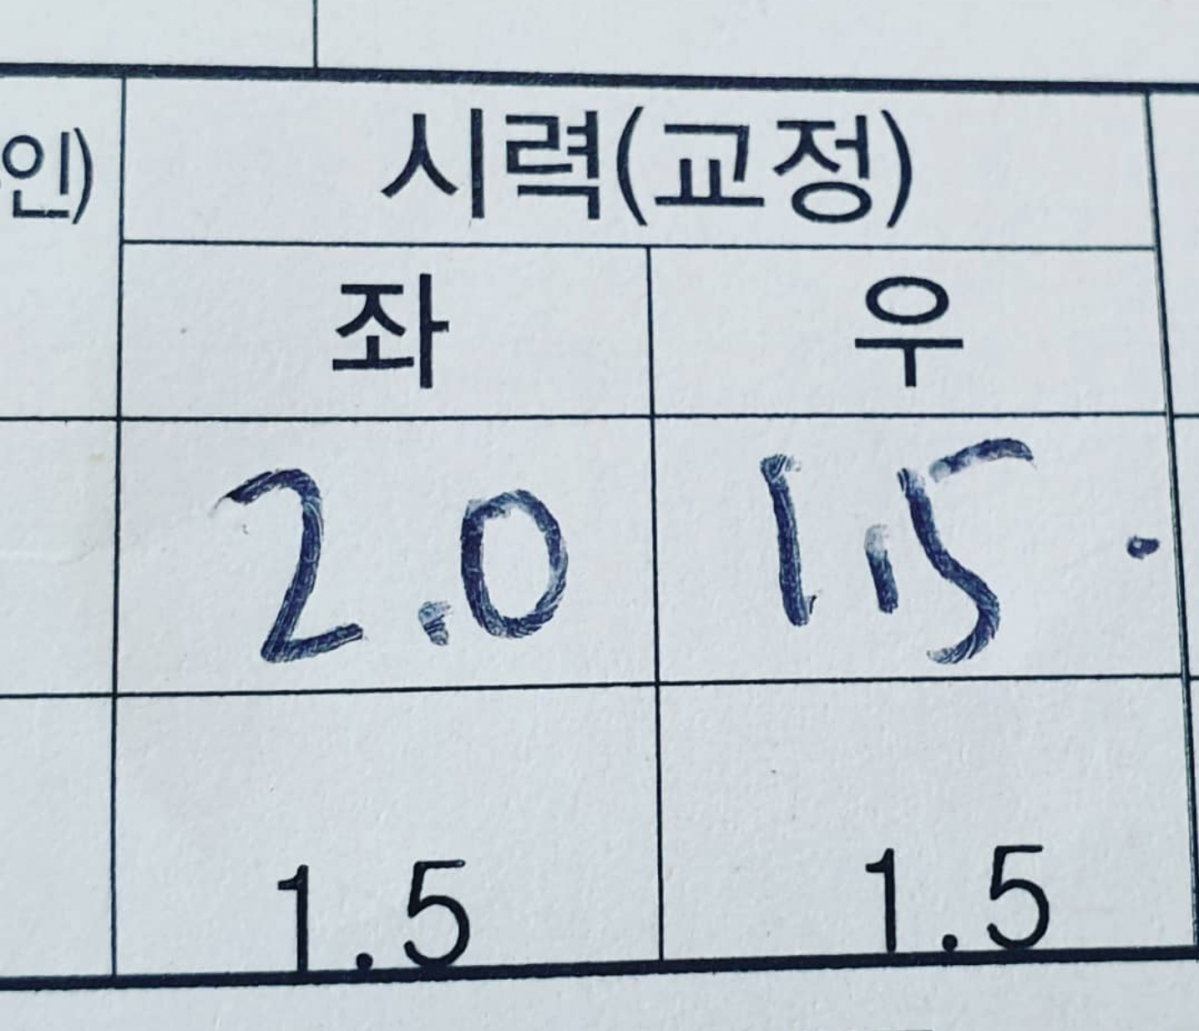 인)
시력(교정)
좌 우
2.0 1.5
1.5 1.5